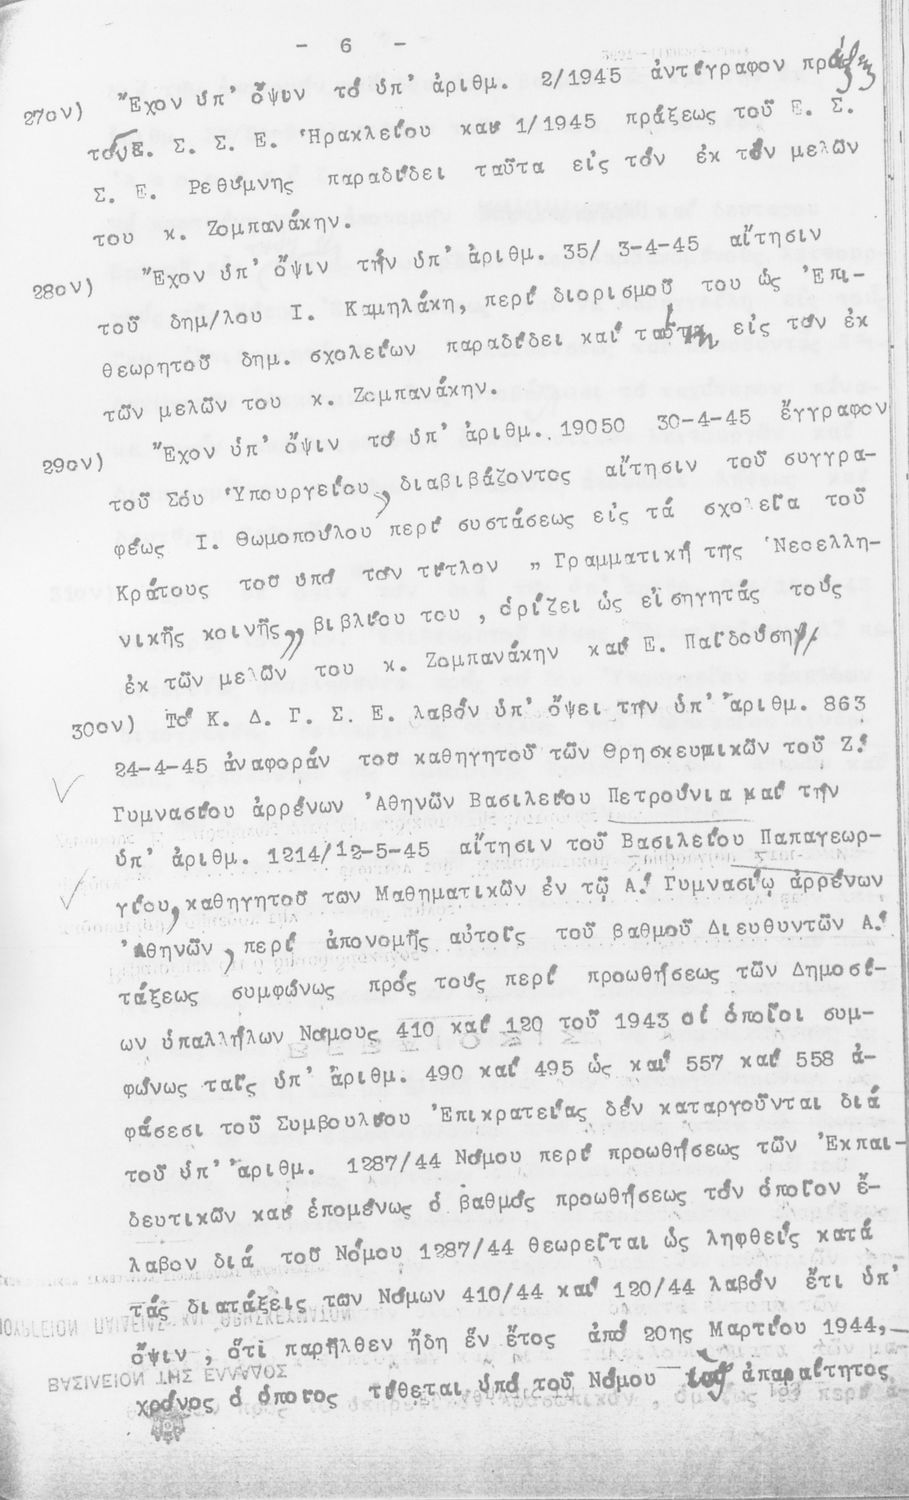 - 6 -
27ον) Ἔχον ὑπ' ὄψιν τό ὑπ' ἀριθμ. 2/1945 ἀντίγραφον πράξεως
τοῦ Ε. Σ. Σ. Ε. Ἡρακλείου καί 1/1945 πράξεως τοῦ Ε. Σ.
Σ. Ε. Ρεθύμνης παραδίδει ταῦτα εἰς τόν ἐκ τῶν μελῶν
του κ. Ζομπανάκην.
28ον) Ἔχον ὑπ' ὄψιν τήν ὑπ' ἀριθμ. 35/ 3-4-45 αἴτησιν
τοῦ δημ/λου Ι. Καμηλάκη, περί διορισμοῦ του ὡς Ἐπι-
θεωρητοῦ δημ. σχολείων παραδίδει καί ταύτην εἰς τόν ἐκ
τῶν μελῶν του κ. Ζομπανάκην.
29ον) Ἔχον ὑπ' ὄψιν τό ὑπ' ἀριθμ. 19050 30-4-45 ἔγγραφον
τοῦ Σοῦ Ὑπουργείου, διαβιβάζοντος αἴτησιν τοῦ συγγρα-
φέως Ι. Θωμοπούλου περί συστάσεως εἰς τά σχολεῖα τοῦ
Κράτους του ὑπό τόν τίτλον „ Γραμματική τῆς Νεοελλη-
νικῆς κοινῆς„ βιβλίου του, ὁρίζει ὡς εἰσηγητάς τούς
ἐκ τῶν μελῶν του κ. Ζομπανάκην καί Ε. Παϊδούση//
30ον) Τό Κ. Δ. Γ. Σ. Ε. λαβόν ὑπ' ὄψει τήν ὑπ' ἀριθμ. 863
24-4-45 ἀναφοράν του καθηγητοῦ τῶν Θρησκευτικῶν τοῦ Ζ.'
Γυμνασίου ἀρρένων Ἀθηνῶν Βασιλείου Πετρούνια καί τήν
ὑπ' ἀριθμ. 1214/12-5-45 αἴτησιν τοῦ Βασιλείου Παπαγεωρ-
γίου, καθηγητοῦ των Μαθηματικῶν ἐν τῷ Α.' Γυμνασίῳ ἀρρένων
Ἀθηνῶν, περί ἀπονομῆς αὐτοῖς τοῦ βαθμοῦ Διευθυντῶν Α.'
τάξεως συμφώνως πρός τούς περί προωθήσεως τῶν Δημοσί-
ων ὑπαλλήλων Νόμους 410 καί 120 τοῦ 1943 οἱ ὁποῖοι συμ-
φώνως ταῖς ὑπ' ἀριθμ. 490 καί 495 ὡς καί 557 καί 558 ἀ-
φάσεσι τοῦ Συμβουλίου Ἐπικρατείας δέν καταργοῦνται διά
τοῦ ὑπ' ἀριθμ. 1287/44 Νόμου περί προωθήσεως τῶν Ἐκπαι-
δευτικῶν καί ἑπομένως ὁ βαθμός προωθήσεως τόν ὁποῖον ἔ-
λαβον διά τοῦ Νόμου 1287/44 θεωρεῖται ὡς ληφθείς κατά
τάς διατάξεις των Νόμων 410/44 καί 120/44 λαβόν ἔτι ὑπ'
ὄψιν, ὅτι παρῆλθεν ἤδη ἕν ἔτος ἀπό 20ης Μαρτίου 1944,
χρόνος ὁ ὁποῖος τίθεται ὑπό τοῦ Νόμου ἀπαραίτητος